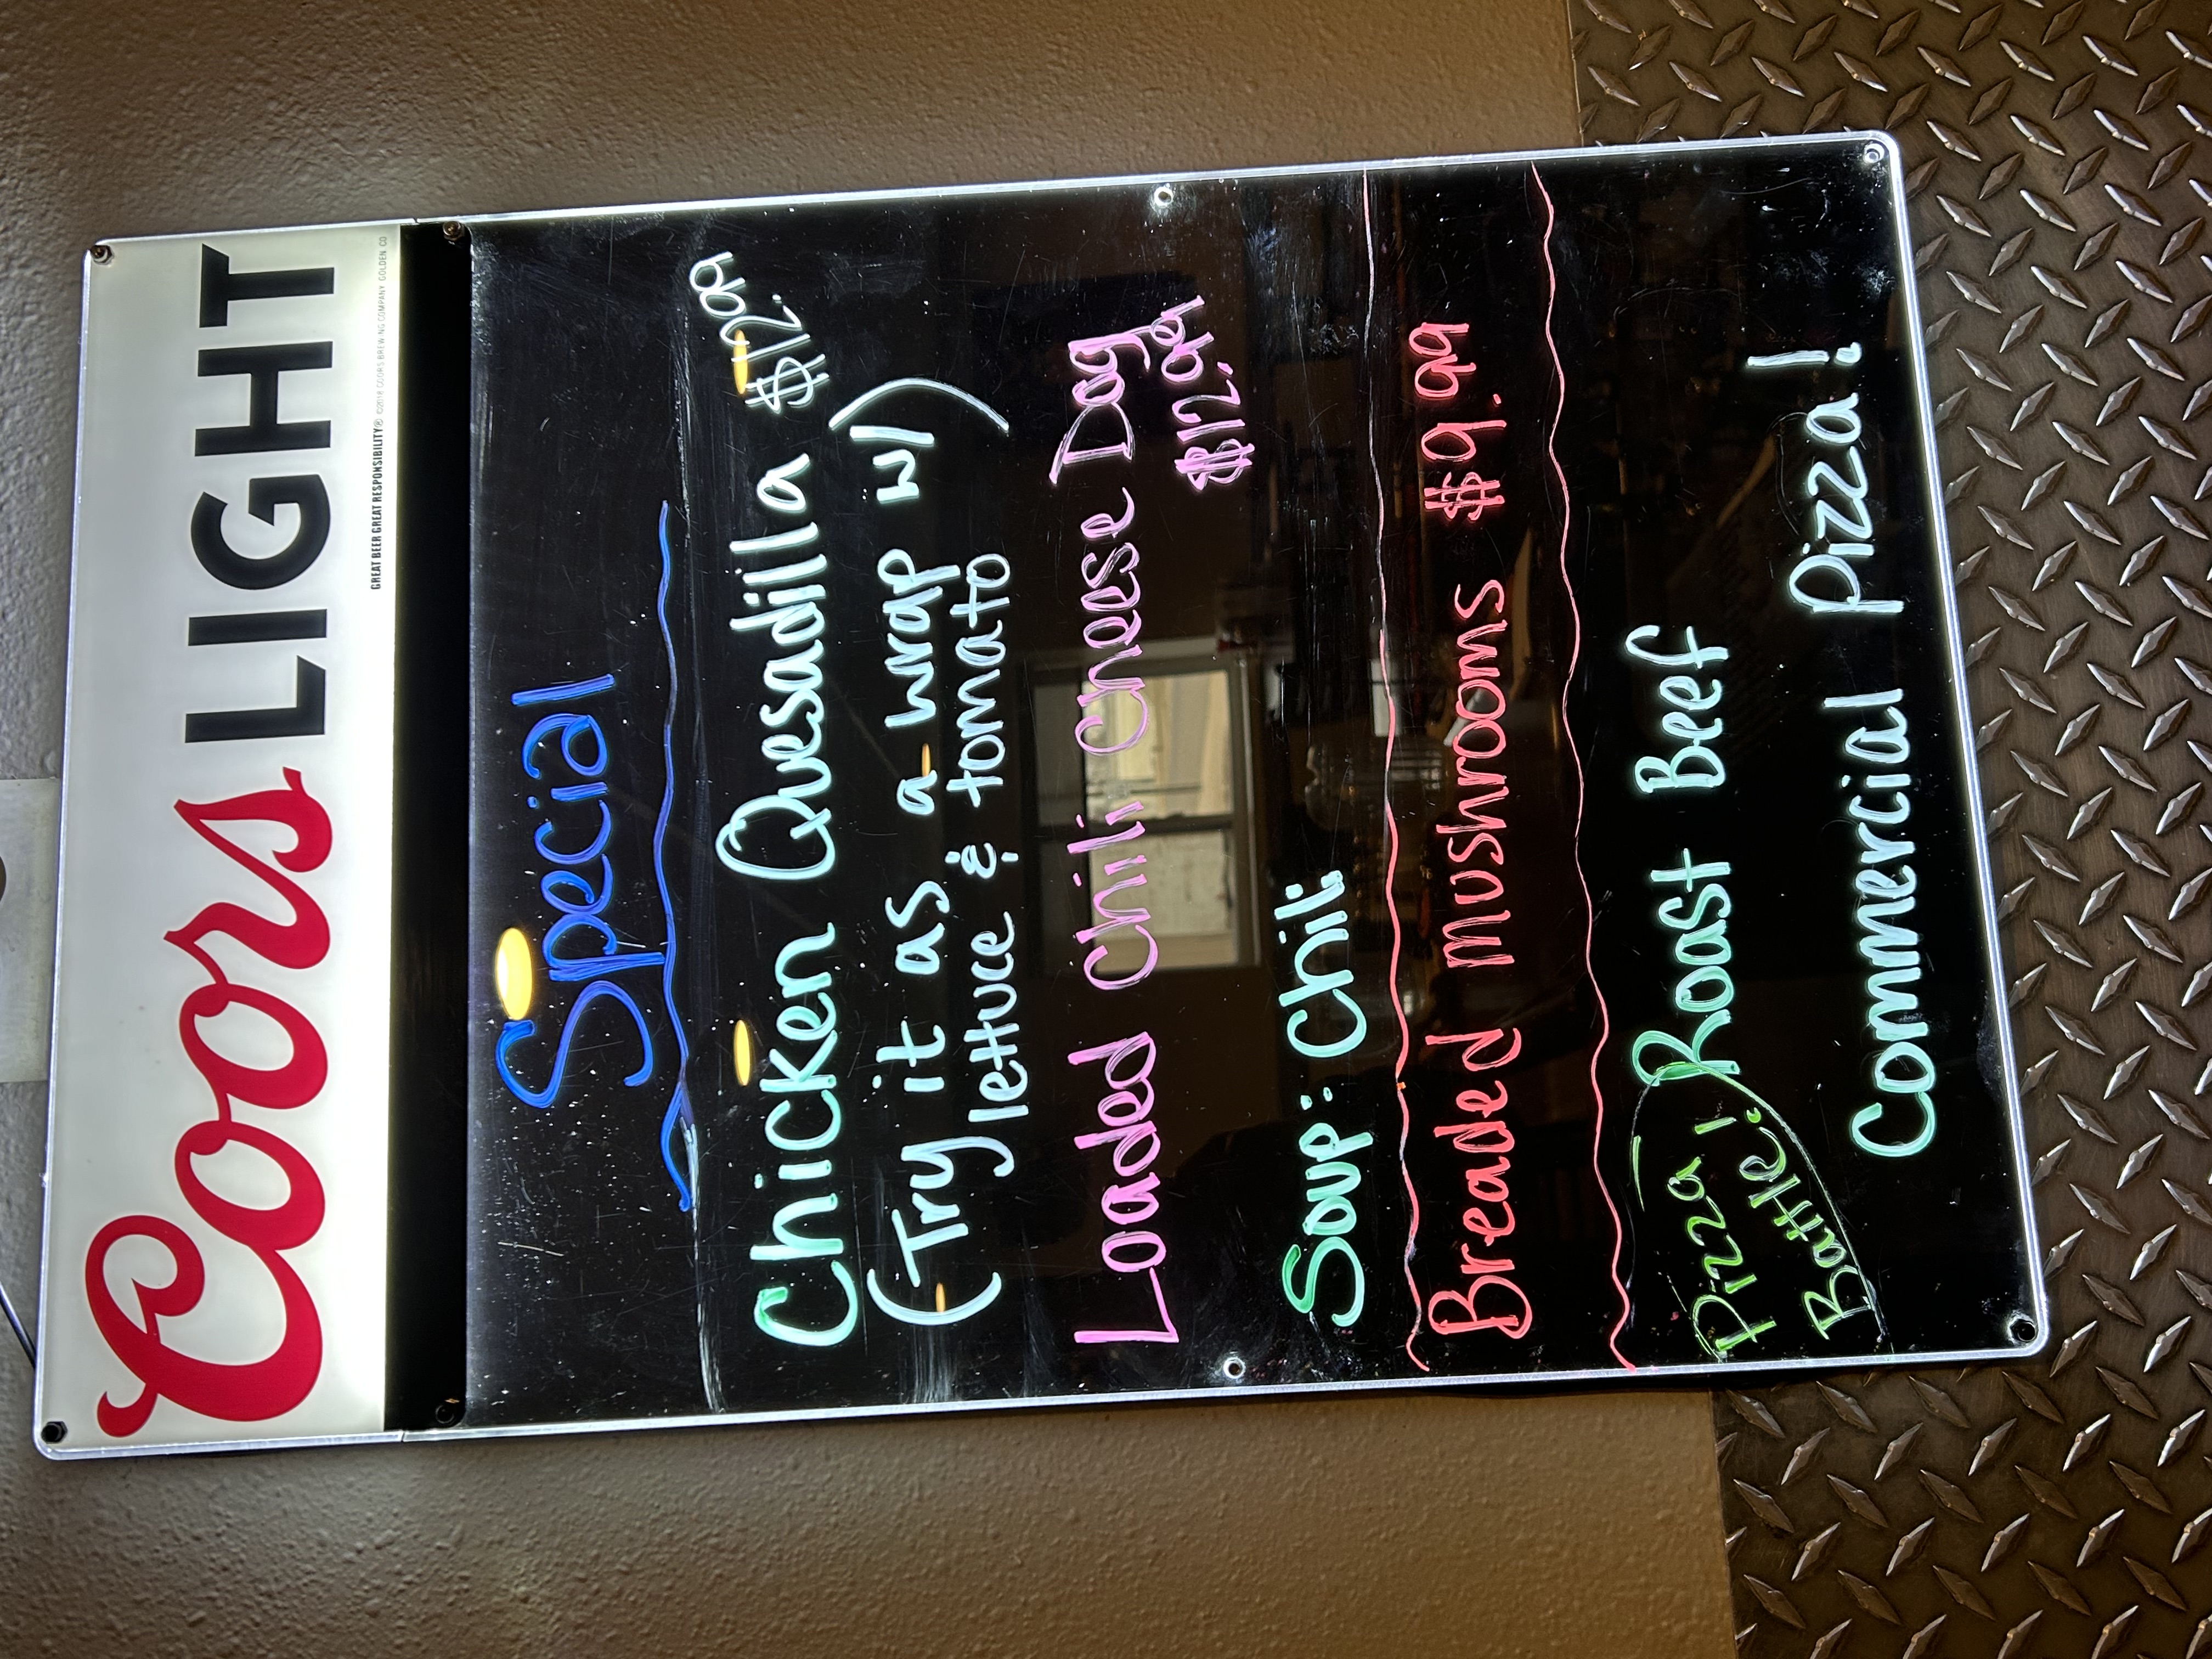 Coors LIGHT
GREAT BEER GREAT RESPONSIBILITY® ©2016 COORS BREWING COMPANY, GOLDEN, CO
Special
Chicken Quesadilla $12.99
(Try it as a wrap w/)
lettuce & tomato
Loaded Chili Cheese Dog
$12.99
Soup: Chili
Breaded mushrooms $9.99
Pizza
Battle!
Roast Beef
Commercial Pizza!